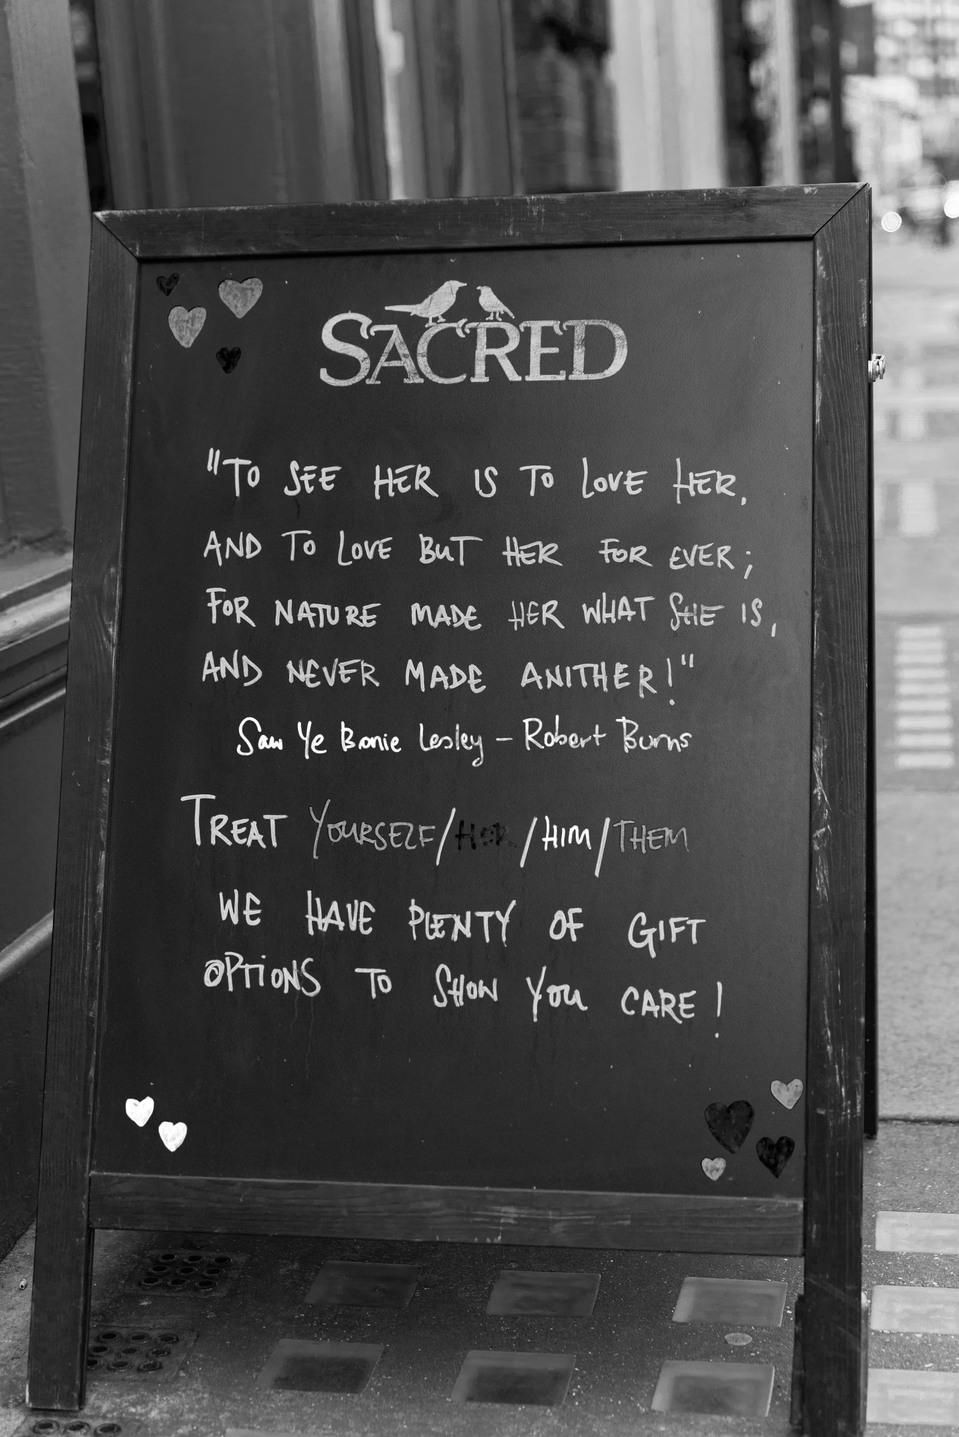 SACRED
"TO SEE HER IS TO LOVE HER,
AND TO LOVE BUT HER FOR EVER;
FOR NATURE MADE HER WHAT SHE IS,
AND NEVER MADE ANITHER!"
Saw Ye Bonie Lesley - Robert Burns
TREAT YOURSELF/HER/HIM/THEM
WE HAVE PLENTY OF GIFT
OPTIONS TO SHOW YOU CARE!